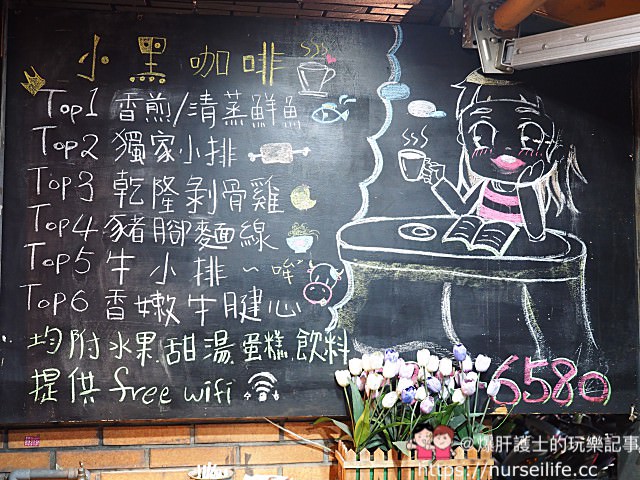 小黑咖啡
Top1 香煎/清蒸鮮魚
Top2 獨家小排
Top3 乾隆剝骨雞
Top4 豬腳麵線
Top5 牛小排~哞
Top6 香嫩牛腱心
均附水果甜湯蛋糕飲料
提供 free wifi
-6580
@爆肝護士的玩樂記事
https://nurseilife.cc
nurseilife.cc